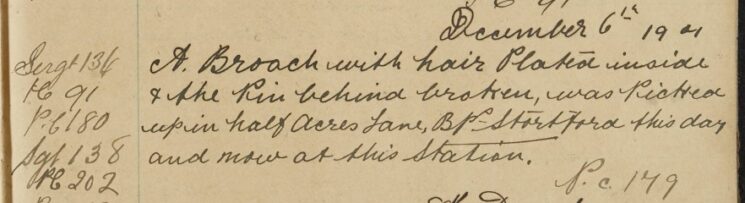 P.C 91
December 6th 1901
Sergt 136 A. Broach with hair Plated inside
PC 91 & the Pin behind broken, was Picked
P.C 180 up in half Acres Lane, Bps Stortford this day
Sgt 138 and now at this Station.
PC 202 P.c. 179